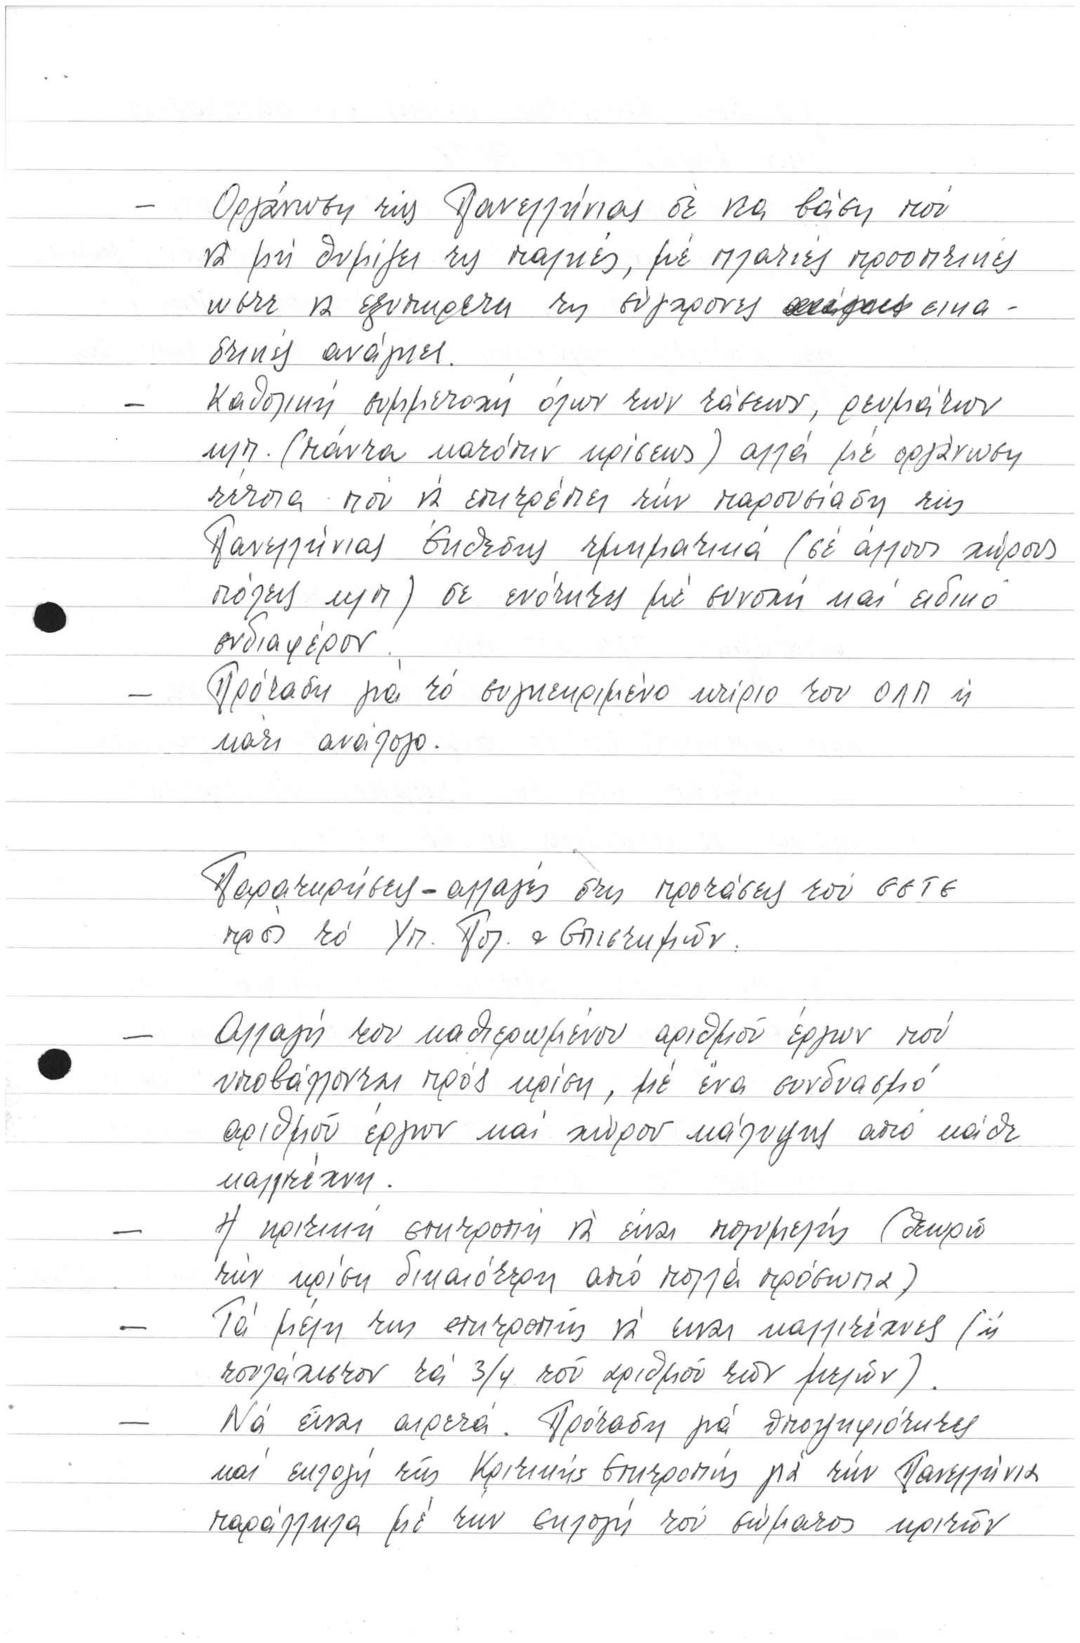 — Οργάνωση τής Πανελλήνιας σέ νέα βάση πού
νά μή θυμίζει τις παλιές, μέ πλατιές προοπτικές
ωστε νά εξυπηρετεί τις σύγχρονες εικα-
στικές ανάγκες.
— Καθολική συμμετοχή όλων των τάσεων, ρευμάτων
κλπ. (πάντα κατόπιν κρίσεως) αλλά μέ οργάνωση
τέτοια πού νά επιτρέπει τήν παρουσίαση τής
Πανελλήνιας Έκθεσης τμηματικά (σέ άλλους χώρους
πόλεις κλπ) σε ενότητες μέ συνοχή καί ειδικό
ενδιαφέρον.
— Πρόταση γιά τό συγκεκριμένο κτίριο του ΟΛΠ ή
κάτι ανάλογο.
Παρατηρήσεις - αλλαγές στις προτάσεις τού ΕΕΤΕ
πρός τό Υπ. Πολ. & Επιστημών.
— Αλλαγή του καθιερωμένου αριθμού έργων πού
υποβάλλονται πρός κρίση, μέ ένα συνδυασμό
αριθμού έργων καί χώρου κάλυψης από κάθε
καλλιτέχνη.
— Η κριτική επιτροπή νά είναι πολυμελής (θεωρώ
τήν κρίση δικαιότερη από πολλά πρόσωπα)
— Τά μέλη της επιτροπής νά ειναι καλλιτέχνες (ή
τουλάχιστον τά 3/4 τού αριθμού τών μελών).
— Νά είναι αιρετά. Πρόταση γιά υποψηφιότητες
καί εκλογή τής Κριτικής Επιτροπής γιά τήν Πανελλήνια
παράλληλα μέ τήν εκλογή τού σώματος κριτών